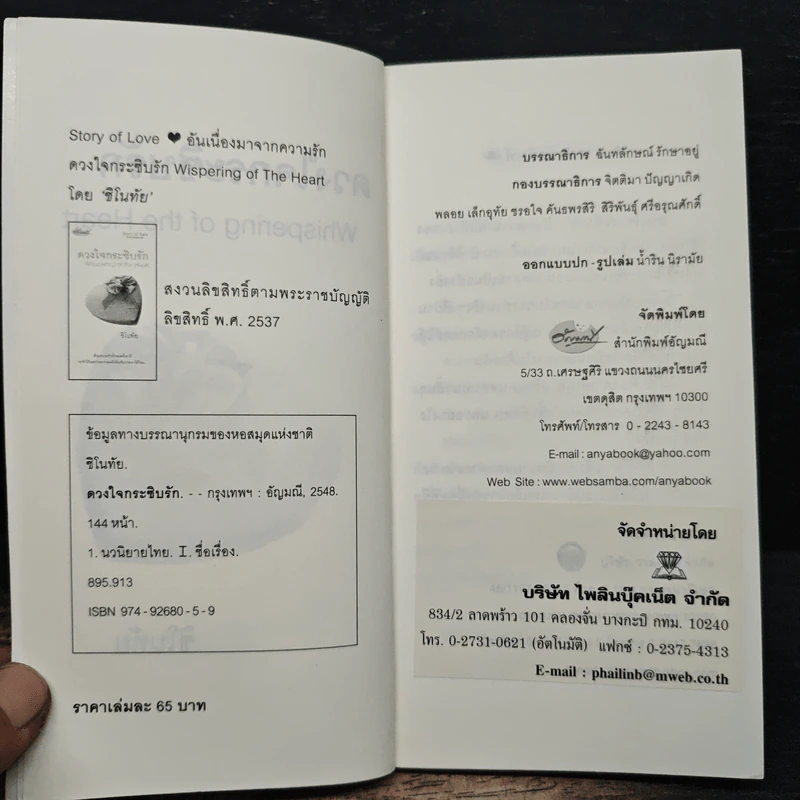 Story of Love ❤ อันเนื่องมาจากความรัก
ดวงใจกระซิบรัก Wispering of The Heart
โดย 'ชิโนทัย'
ดวงใจกระซิบรัก
ชิโนทัย
สงวนลิขสิทธิ์ตามพระราชบัญญัติ
ลิขสิทธิ์ พ.ศ. 2537
ข้อมูลทางบรรณานุกรมของหอสมุดแห่งชาติ
ชิโนทัย.
ดวงใจกระซิบรัก. - - กรุงเทพฯ : อัญมณี, 2548.
144 หน้า.
1. นวนิยายไทย. I. ชื่อเรื่อง.
895.913
ISBN 974-92680-5-9
ราคาเล่มละ 65 บาท
บรรณาธิการ ฉันทลักษณ์ รักษาอยู่
กองบรรณาธิการ จิตติมา ปัญญาเกิด
พลอย เล็กอุทัย ชรอใจ คันธพรสิริ สิริพันธุ์ ศรีอรุณศักดิ์
ออกแบบปก - รูปเล่ม น้ำริน นิรามัย
จัดพิมพ์โดย
อัญมณี สำนักพิมพ์อัญมณี
5/33 ถ.เศรษฐศิริ แขวงถนนนครไชยศรี
เขตดุสิต กรุงเทพฯ 10300
โทรศัพท์/โทรสาร 0 - 2243 - 8143
E-mail : anyabook@yahoo.com
Web Site : www.websamba.com/anyabook
จัดจำหน่ายโดย
บริษัท ไพลินบุ๊คเน็ต จำกัด
834/2 ลาดพร้าว 101 คลองจั่น บางกะปิ กทม. 10240
โทร. 0-2731-0621 (อัตโนมัติ) แฟกซ์ : 0-2375-4313
E-mail : phailinb@mweb.co.th